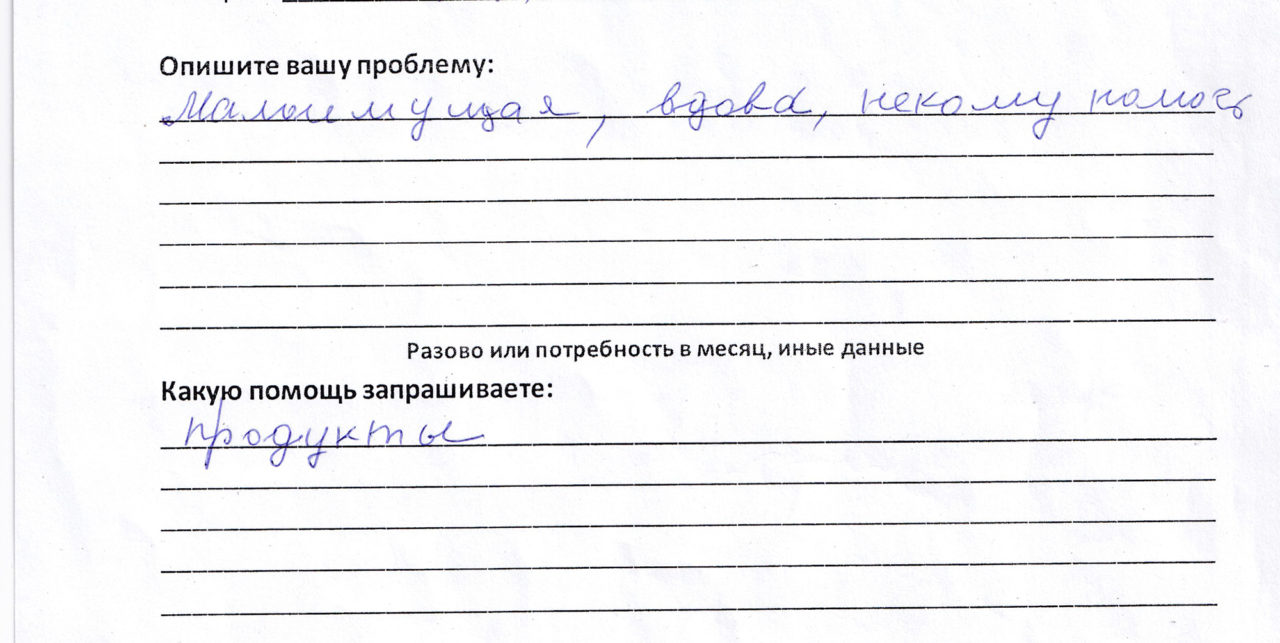 Опишите вашу проблему:
Малоимущая, вдова, некому помочь
Разово или потребность в месяц, иные данные
Какую помощь запрашиваете:
продукты